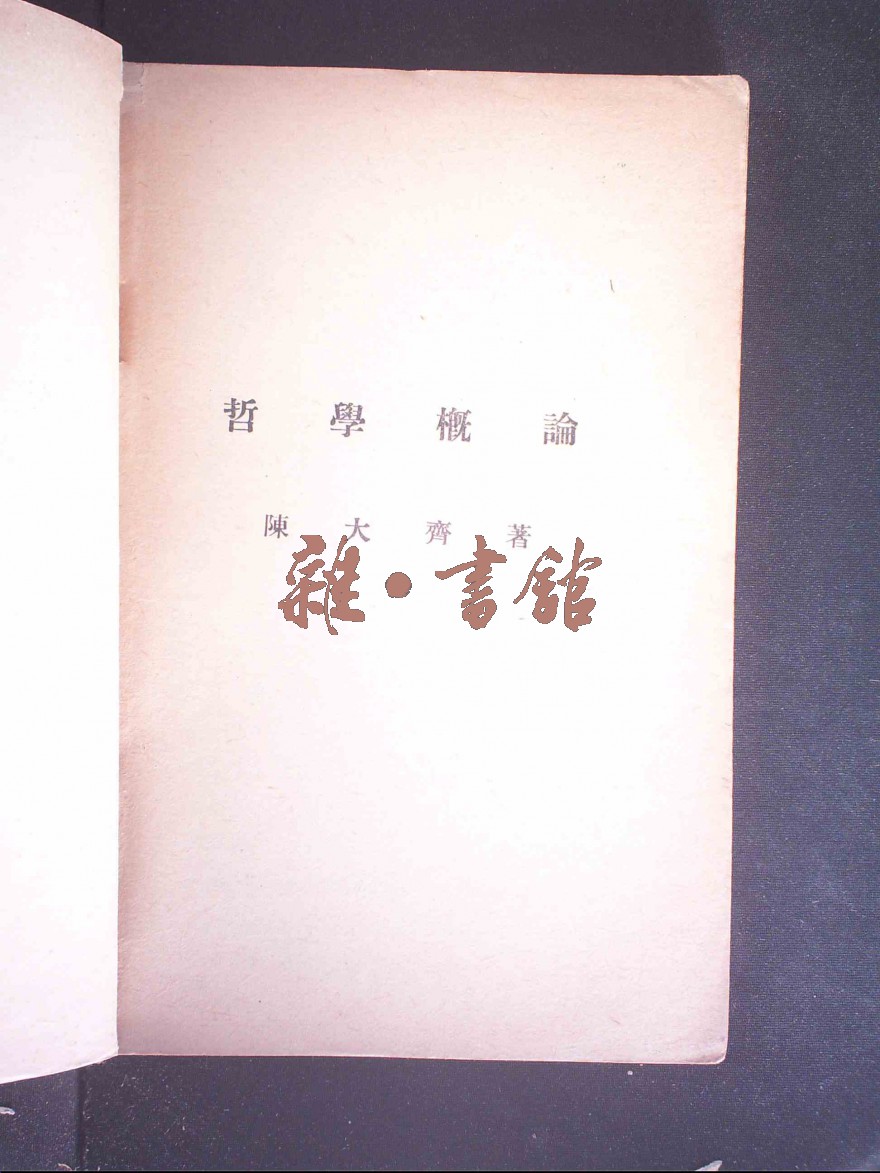 哲學概論
陳大齊著
雜·書館